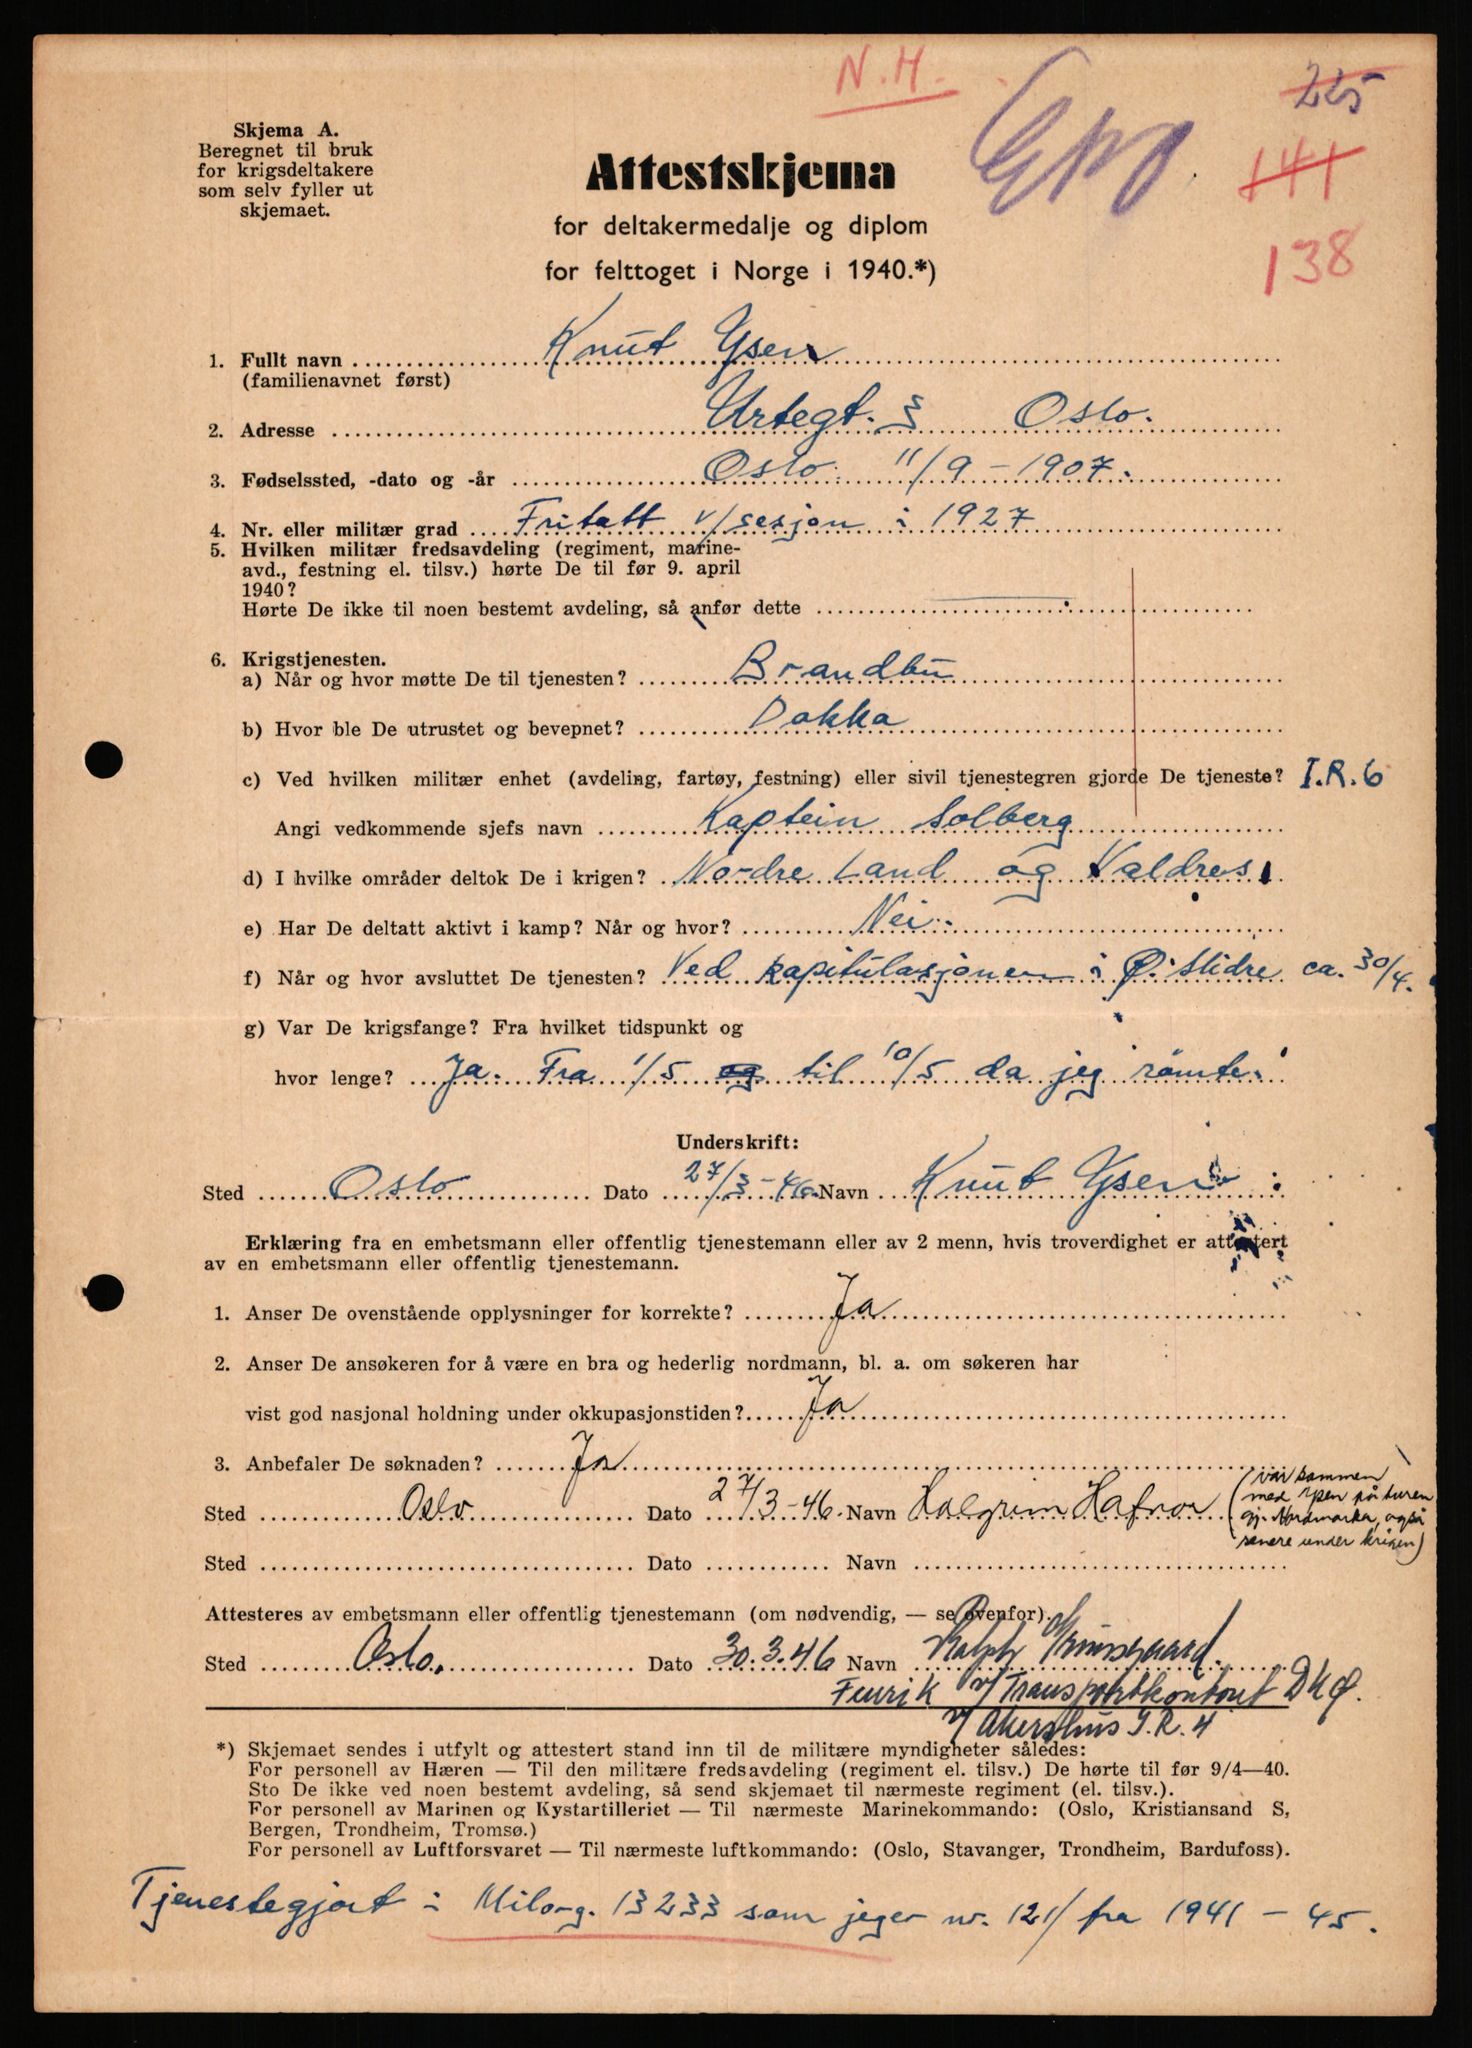 N.H.
225
141
138
Skjema A.
Beregnet til bruk
for krigsdeltakere
som selv fyller ut
skjemaet.
Attestskjema
for deltakermedalje og diplom
for felttoget i Norge i 1940.*)
1. Fullt navn Knut Ysen
(familienavnet først)
2. Adresse Urtegt. 3 Oslo.
3. Fødselssted, -dato og -år Oslo. 11/9-1907.
4. Nr. eller militær grad Fritatt v/sesjon i 1927
5. Hvilken militær fredsavdeling (regiment, marine-
avd., festning el. tilsv.) hørte De til før 9. april
1940?
Hørte De ikke til noen bestemt avdeling, så anfør dette
6. Krigstjenesten.
a) Når og hvor møtte De til tjenesten? Brandbu
b) Hvor ble De utrustet og bevepnet? Dokka
c) Ved hvilken militær enhet (avdeling, fartøy, festning) eller sivil tjenestegren gjorde De tjeneste? I.R.6
Angi vedkommende sjefs navn Kaptein Solberg
d) I hvilke områder deltok De i krigen? Nordre Land og Valdres.
e) Har De deltatt aktivt i kamp? Når og hvor? Nei.
f) Når og hvor avsluttet De tjenesten? Ved kapitulasjonen i Ø. Slidre ca. 30/4.
g) Var De krigsfange? Fra hvilket tidspunkt og
hvor lenge? Ja. Fra 1/5 og til 10/5 da jeg rømte.
Underskrift:
Sted Oslo Dato 27/3-46. Navn Knut Ysen
Erklæring fra en embetsmann eller offentlig tjenestemann eller av 2 menn, hvis troverdighet er attestert
av en embetsmann eller offentlig tjenestemann.
1. Anser De ovenstående opplysninger for korrekte? Ja
2. Anser De ansøkeren for å være en bra og hederlig nordmann, bl. a. om søkeren har
vist god nasjonal holdning under okkupasjonstiden? Ja
3. Anbefaler De søknaden? Ja
Sted Oslo Dato 27/3-46. Navn Halgrim Hafnor
(var sammen
med Ysen på turen
gj. Nordmarka, også
senere under krigen)
Sted Dato Navn
Attesteres av embetsmann eller offentlig tjenestemann (om nødvendig, — se ovenfor).
Sted Oslo. Dato 30.3.46 Navn Ralph
Fenrik v/Transportkontoret DKØ.
v/Akershus I.R. 4
*) Skjemaet sendes i utfylt og attestert stand inn til de militære myndigheter således:
For personell av Hæren — Til den militære fredsavdeling (regiment el. tilsv.) De hørte til før 9/4—40.
Sto De ikke ved noen bestemt avdeling, så send skjemaet til nærmeste regiment (el. tilsv.).
For personell av Marinen og Kystartilleriet — Til nærmeste Marinekommando: (Oslo, Kristiansand S,
Bergen, Trondheim, Tromsø.)
For personell av Luftforsvaret — Til nærmeste luftkommando: (Oslo, Stavanger, Trondheim, Bardufoss).
Tjenestegjort i Milorg. 13233 som jeger nr. 121/ fra 1941 - 45.